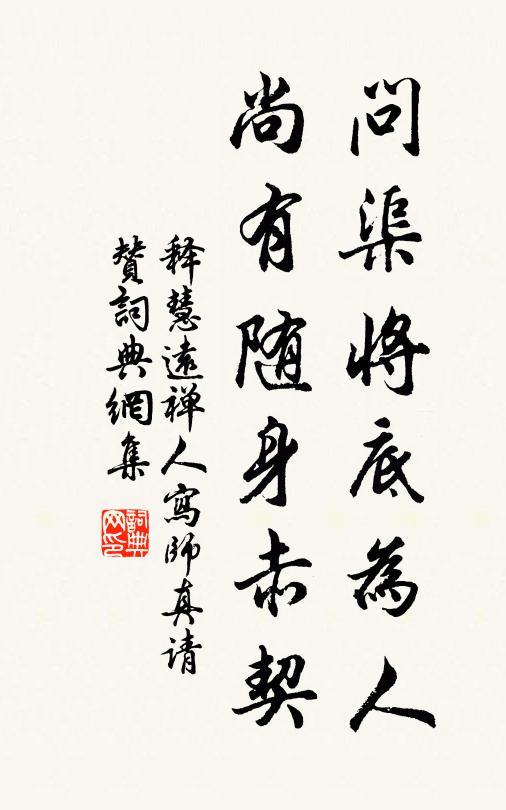 問渠將底為人
尚有随身赤契
释慧遠禅人寫師真请
贊詞典網集
詞典
网印